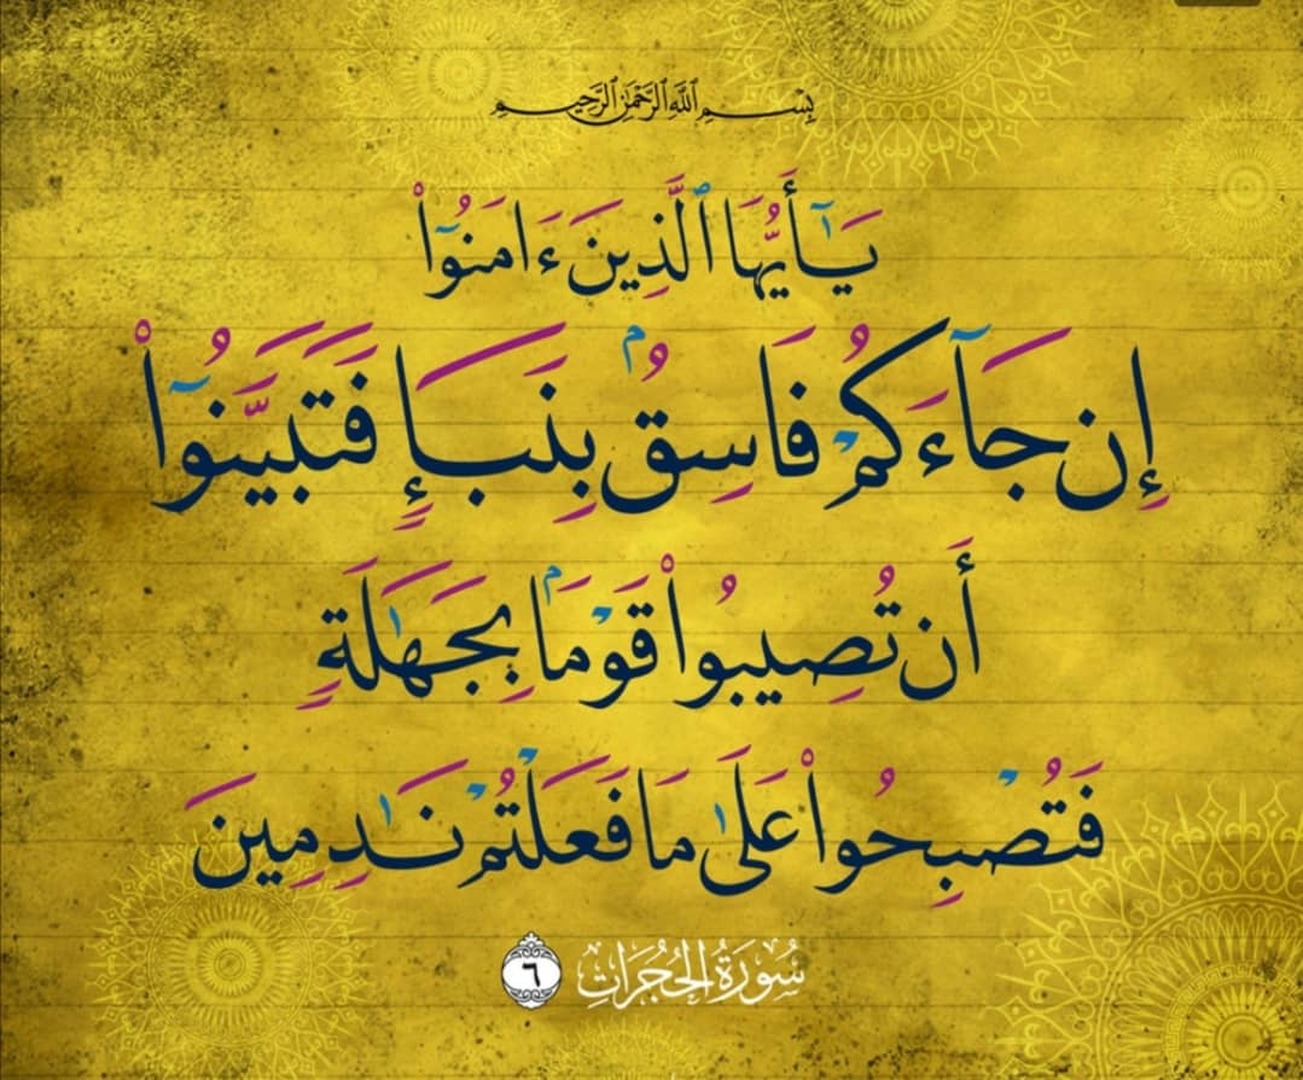 بِسْمِ ٱللَّهِ ٱلرَّحْمَٰنِ ٱلرَّحِيمِ
يَـٰٓأَيُّهَا ٱلَّذِينَ ءَامَنُوٓا۟
إِن جَآءَكُمْ فَاسِقٌۢ بِنَبَإٍ فَتَبَيَّنُوٓا۟
أَن تُصِيبُوا۟ قَوْمَۢا بِجَهَـٰلَةٍ
فَتُصْبِحُوا۟ عَلَىٰ مَا فَعَلْتُمْ نَـٰدِمِينَ
سُورَةُ الحُجُرَاتِ ٦